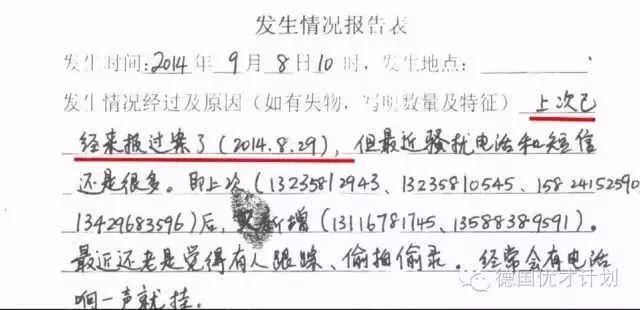 发生情况报告表
发生时间:2014年9月8日10时,发生地点:
发生情况经过及原因(如有失物,写明数量及特征)上次已
经来报过案了(2014.8.29),但最近骚扰电话和短信
还是很多。即上次(13235812943、13235810545、15824152590
13429683596)后,又新增(13116781745、13588389591)。
最近还老是觉得有人跟踪、偷拍偷录。经常会有电话
响一声就挂。
德国优才计划